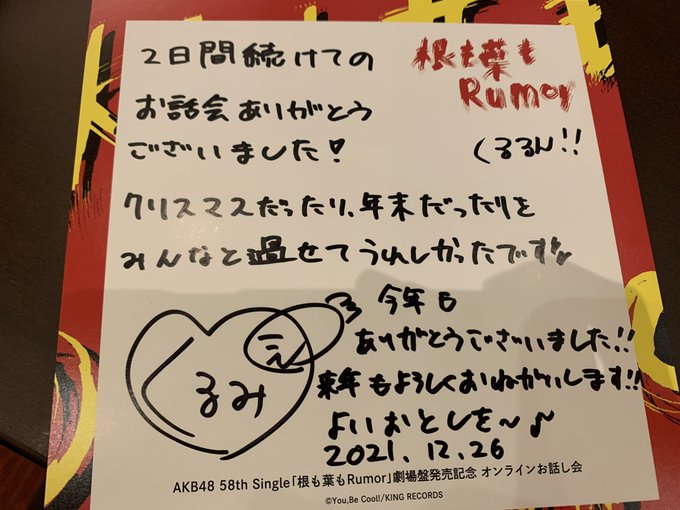 2日間続けての
お話会ありがとう
ございました!
根も葉も
Rumor
くるるん!!
クリスマスだったり、年末だったりを
みんなと過せてうれしかったです
今年も
ありがとうございました!!
来年もよろしくおねがいします!!
よいおとしを〜♪
2021.12.26
るみ
AKB48 58th Single「根も葉もRumor」劇場盤発売記念 オンラインお話し会
©You,Be Cool!/KING RECORDS